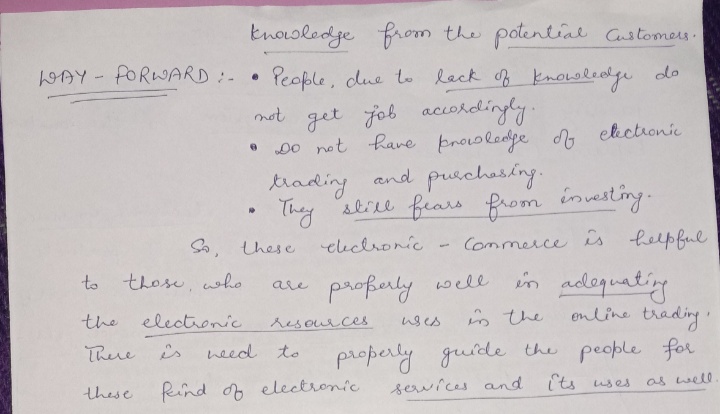 knowledge from the potential customers.
WAY - FORWARD :- • People, due to lack of knowledge do
not get job accordingly.
• Do not have knowledge of electronic
trading and purchasing.
• They still fears from investing.
So, these electronic - commerce is helpful
to those, who are properly well in adequating
the electronic resources uses in the online trading.
There is need to properly guide the people for
these kind of electronic services and its uses as well.